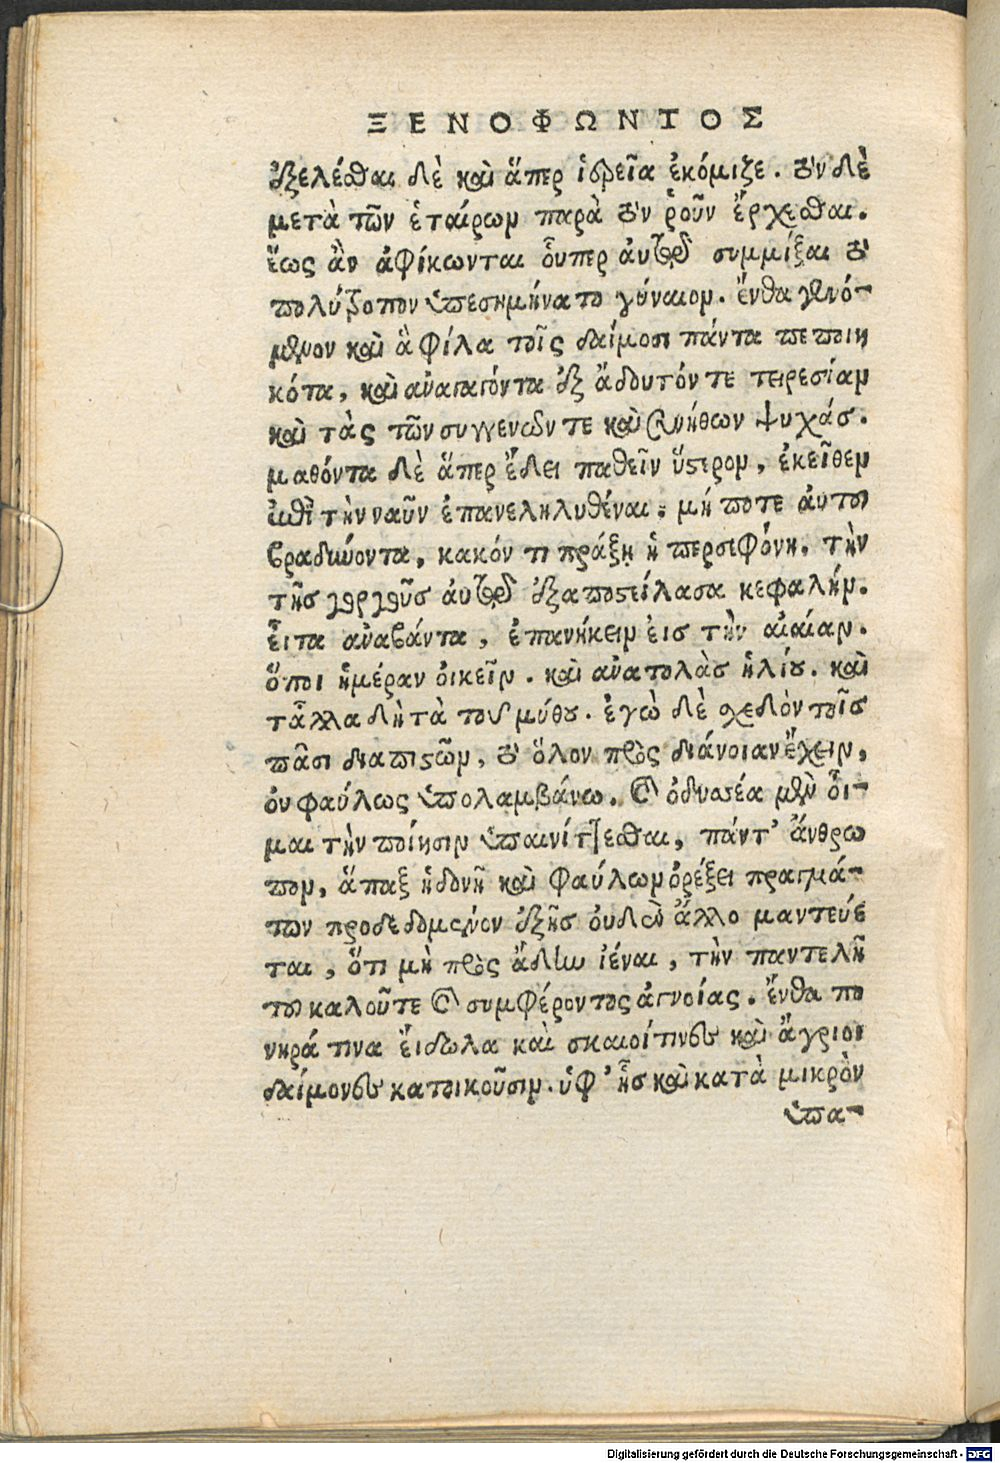 ΞΕΝΟΦΩΝΤΟΣ
ἐξελέσθαι δὲ καὶ ἅπερ ἱερεῖα ἐκόμιζε. τὸν δὲ
μετὰ τῶν ἑταίρων παρὰ τὸν ῥοῦν ἔρχεσθαι.
ἕως ἂν ἀφίκωνται οὗπερ ἀυτῷ συμμίξαι τὸ
πολύτροπον ὑπεσημήνατο γύναιον. ἔνθα γενό-
μενον καὶ ἃ φίλα τοῖς δαίμοσι πάντα πεποιη
κότα, καὶ ἀναπιόντα ἐξ ἄδου τόν τε τειρεσίαν
καὶ τὰς τῶν συγγενῶν τε καὶ συνήθων ψυχάσ.
μαθόντα δὲ ἅπερ ἔδει παθεῖν ὕστερον, ἐκεῖθεν
ἐπὶ τὴν ναῦν ἐπανεληλυθέναι. μή ποτε ἀυτοῦ
βραδύνοντα, κακόν τι πράξῃ ἡ περσεφόνη. τὴν
τῆσ γοργοῦσ ἀυτῷ ἐξαποστείλασα κεφαλήν.
εἶτα ἀναβάντα, ἐπανήκειν ἐισ τὴν αἰαίαν.
ὅποι ἡμέραν ὀικεῖν. καὶ ἀνατολὰσ ἡλίου. καὶ
τἆλλα δὴ τὰ τοῦ μύθου. ἐγὼ δὲ σχεδὸν τοῖσ
πᾶσι διαπιστῶν, τὸ ὅλον πρὸς διάνοιαν ἔχειν,
ὀυ φαύλως ὑπολαμβάνω. τὸν ὀδυσσέα μὲν οἶ-
μαι τὴν ποίησιν ὑπαινίττεσθαι, πάντ' ἄνθρω
πον, ἅπαξ ἡδονῆ καὶ φαύλων ὀρέξει πραγμά-
των προδεδομένον ἑξῆσ ὀυδὲν ἄλλο μαντεύε
ται, ὅτι μὴ πρὸς ἅδην ἰέναι, τὴν παντελῆ
τοῦ καλοῦ τε καὶ συμφέροντος ἀγνοίας. ἔνθα πο
νηρά τινα ἔιδωλα καὶ σκαιοί τινες καὶ ἄγριοι
δαίμονες κατοικοῦσιν. ὑφ' ἧσ καὶ κατὰ μικρὸν
ὑπα-
Digitalisierung gefördert durch die Deutsche Forschungsgemeinschaft - DFG